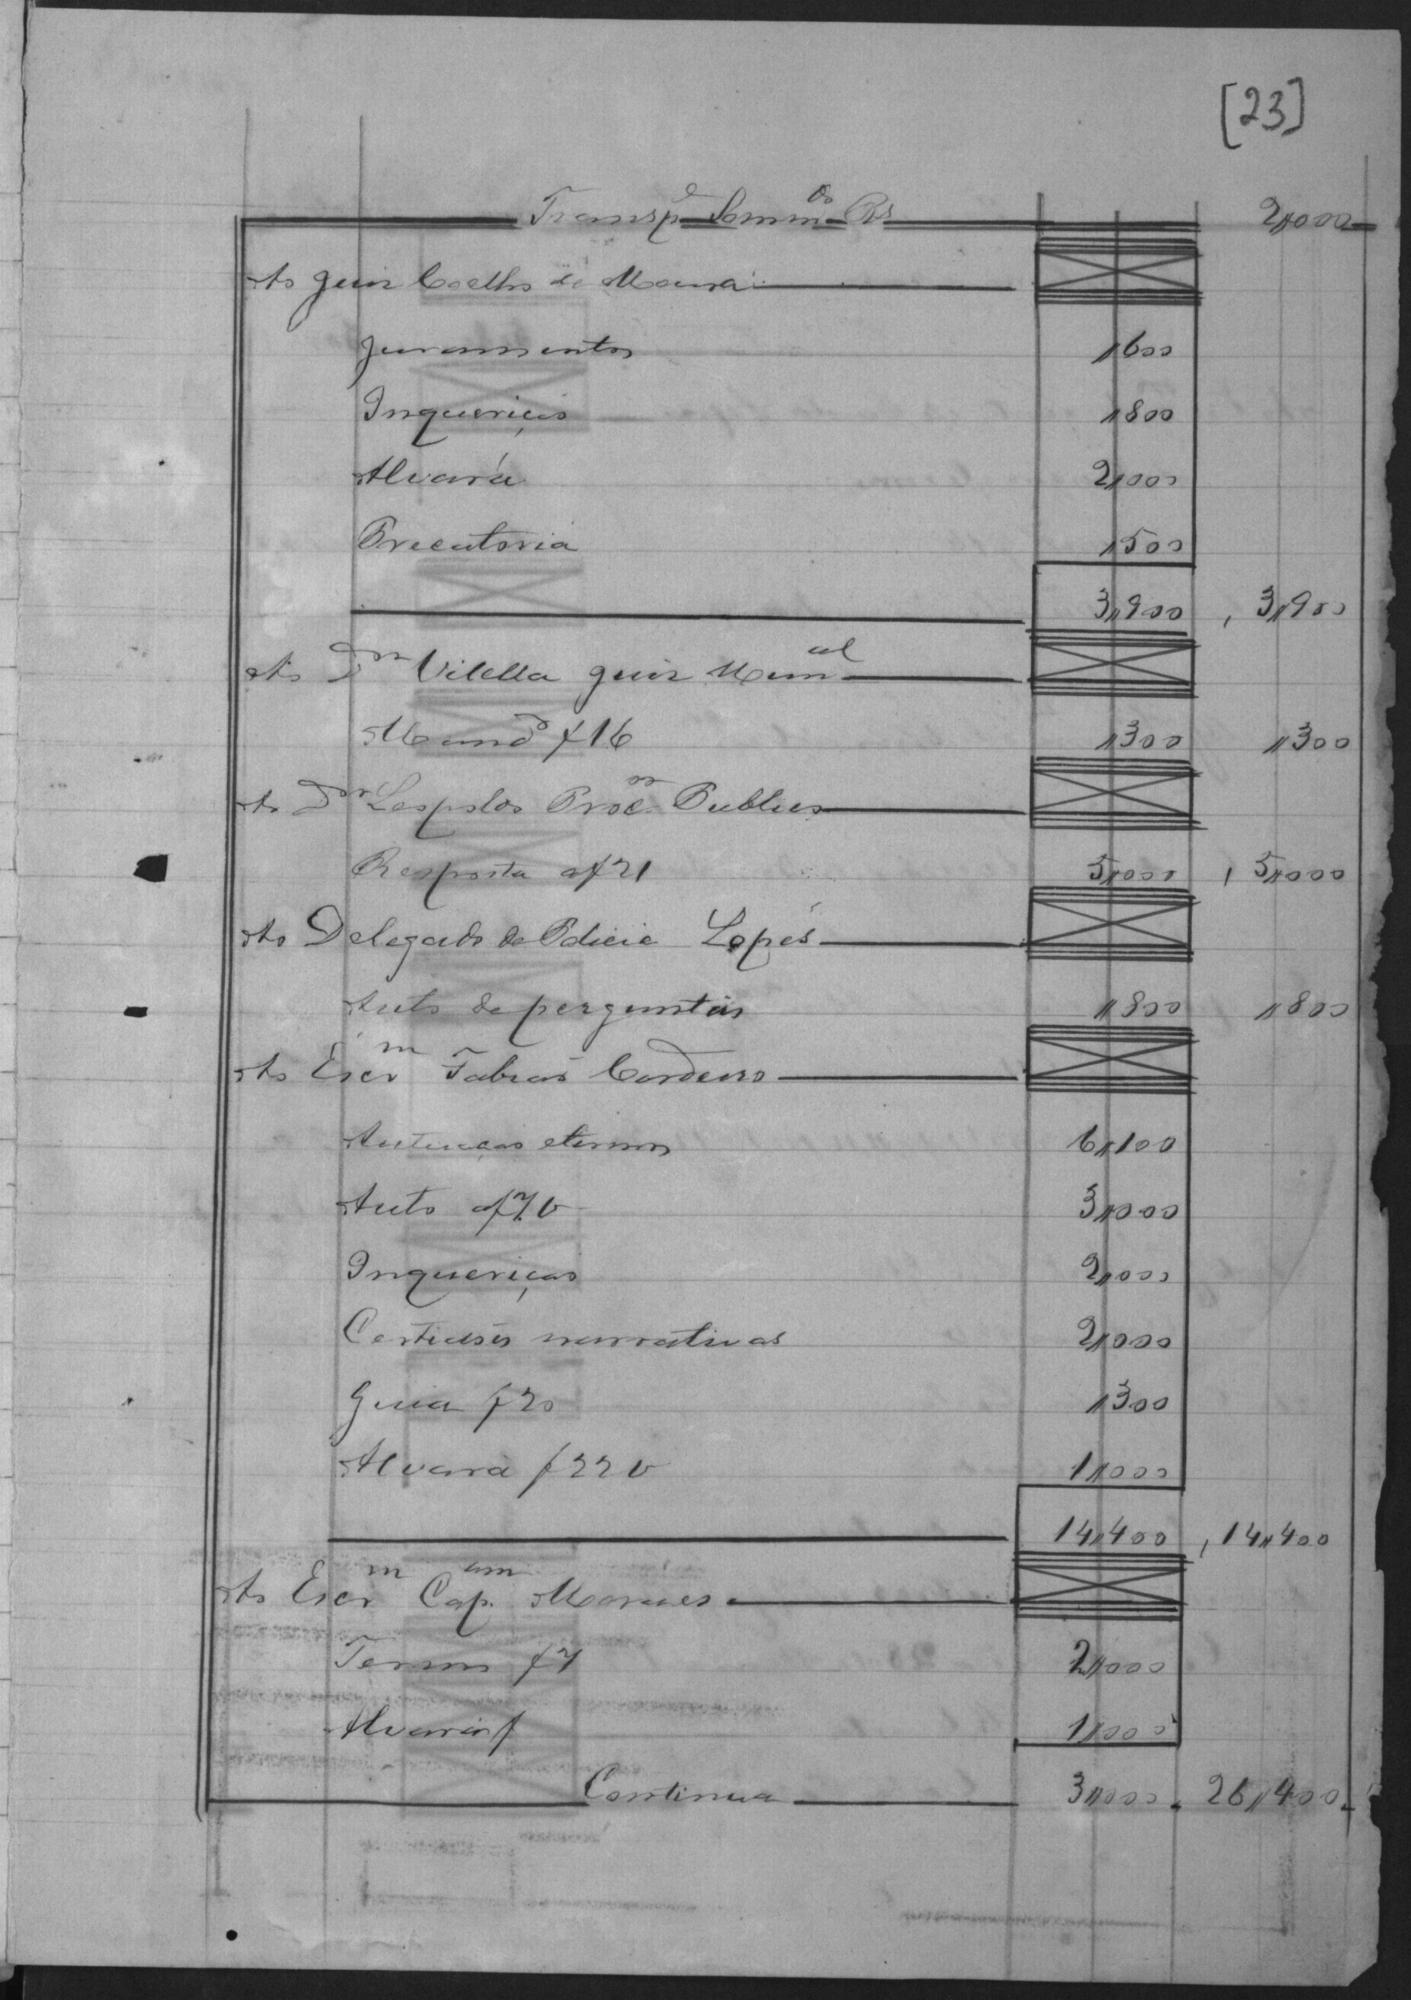 [23]
Transp.e Somm.do Rs 2,,000
Ao Juiz Coelho de Moura
Juramentos ,,600
Inquerições ,,800
Alvará 2,,000
Precatoria ,,500
3,,900 , 3,,900
Ao Dr Vilella Juiz Mun.al
Mand.o f 16 ,,300 ,,300
Ao Dr Leopoldo Proc.or Publico
Resposta a f 21 5,,000 , 5,,000
Ao Delegado de Policia Lopes
Auto de perguntas ,,800 ,,800
Ao Escr.m Fabião Cordeiro
Autuação e termos 6,,100
Auto a f 7 v 3,,000
Inquerição 2,,000
Certidões narrativas 2,,000
Guia f 20 ,,300
Alvará f 22 v 1,,000
14,,400 , 14,,400
Ao Escr.m Cap.am Moraes
Termo f 7 2,,000
Alvará f 1,,000
Continua 3,,000 . 26,,400